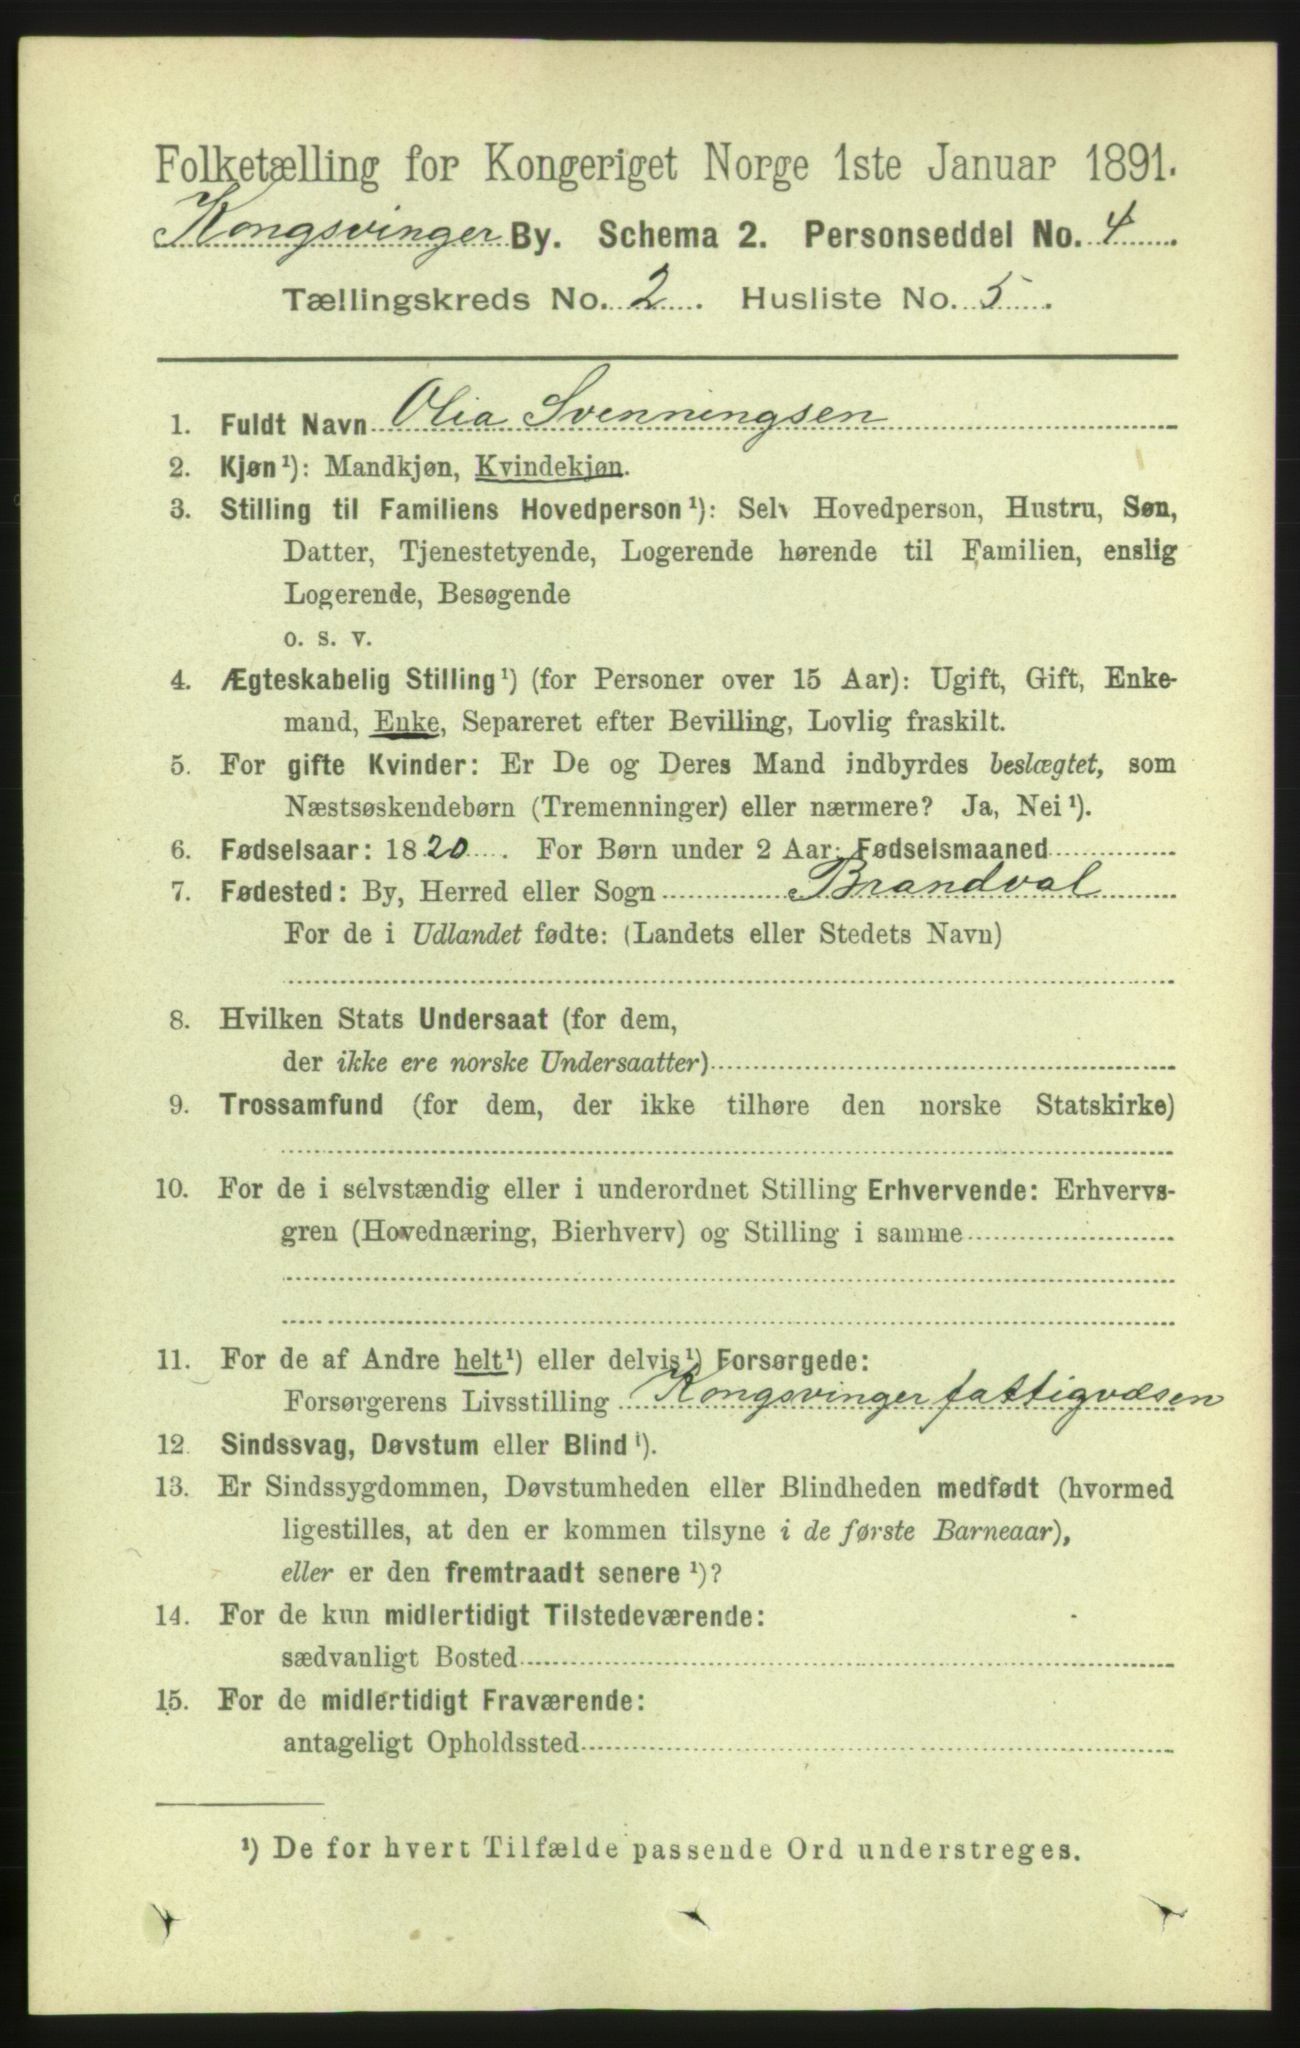 Folketælling for Kongeriget Norge 1ste Januar 1891.
Kongsvinger By. Schema 2. Personseddel No. 4
Tællingskreds No. 2. Husliste No. 5.
1. Fuldt Navn Olia Svenningsen
2. Kjøn¹): Mandkjøn, Kvindekjøn.
3. Stilling til Familiens Hovedperson¹): Selv Hovedperson, Hustru, Søn,
Datter, Tjenestetyende, Logerende hørende til Familien, enslig
Logerende, Besøgende
o. s. v.
4. Ægteskabelig Stilling¹) (for Personer over 15 Aar): Ugift, Gift, Enke-
mand, Enke, Separeret efter Bevilling, Lovlig fraskilt.
5. For gifte Kvinder: Er De og Deres Mand indbyrdes beslægtet, som
Næstsøskendebørn (Tremenninger) eller nærmere? Ja, Nei¹).
6. Fødselsaar: 1820. For Børn under 2 Aar: Fødselsmaaned
7. Fødested: By, Herred eller Sogn Brandval
For de i Udlandet fødte: (Landets eller Stedets Navn)
8. Hvilken Stats Undersaat (for dem,
der ikke ere norske Undersaatter)
9. Trossamfund (for dem, der ikke tilhøre den norske Statskirke)
10. For de i selvstændig eller i underordnet Stilling Erhvervende: Erhvervs-
gren (Hovednæring, Bierhverv) og Stilling i samme
11. For de af Andre helt¹) eller delvis¹) Forsørgede:
Forsørgerens Livsstilling Kongsvinger fattigvæsen
12. Sindssvag, Døvstum eller Blind¹).
13. Er Sindssygdommen, Døvstumheden eller Blindheden medfødt (hvormed
ligestilles, at den er kommen tilsyne i de første Barneaar),
eller er den fremtraadt senere¹)?
14. For de kun midlertidigt Tilstedeværende:
sædvanligt Bosted
15. For de midlertidigt Fraværende:
antageligt Opholdssted
¹) De for hvert Tilfælde passende Ord understreges.